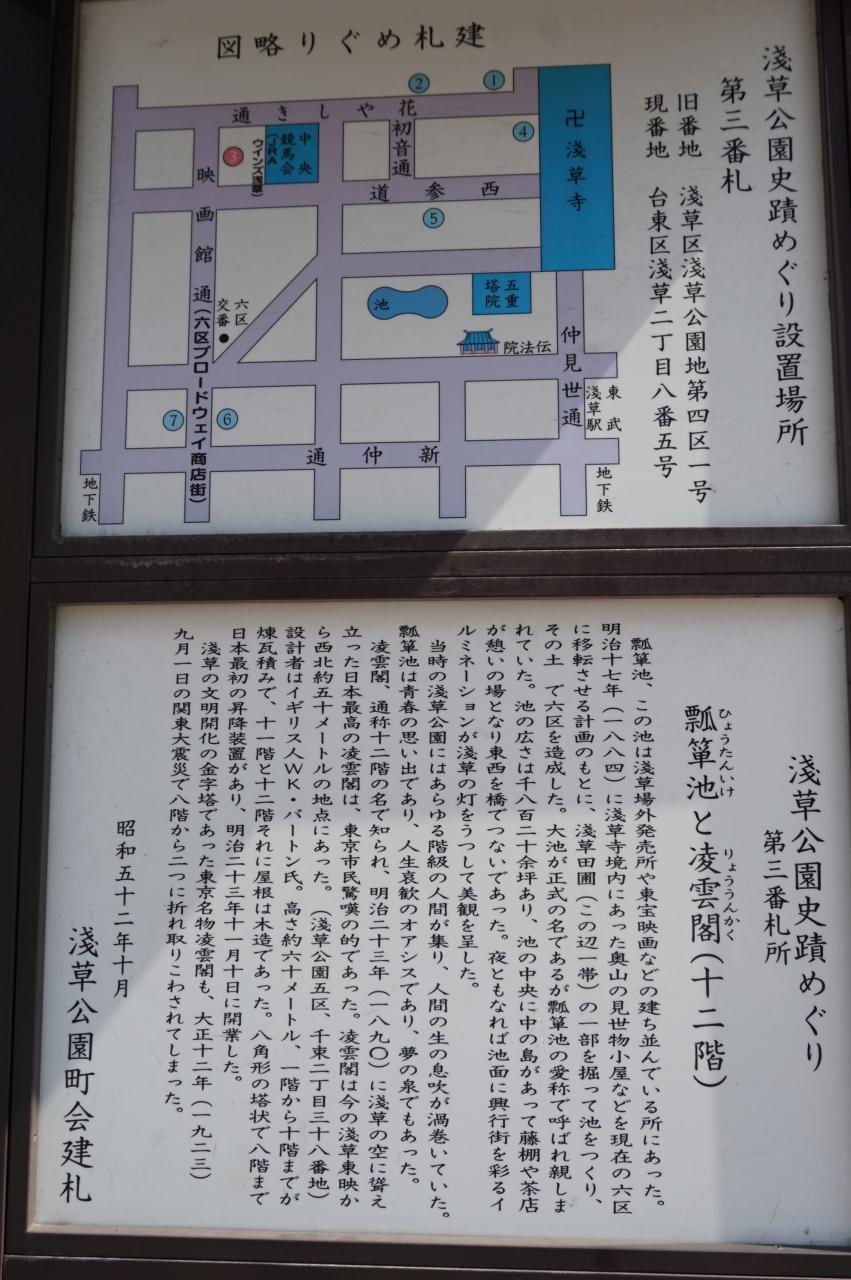 淺草公園史蹟めぐり設置場所
第三番札
旧番地　淺草区淺草公園地第四区一号
現番地　台東区淺草二丁目八番五号
建札めぐり略図
①
②
③
④
⑤
⑥
⑦
卍 淺草寺
花やしき通
初音通
中央
競馬会
(JRA
ウインズ浅草)
西参道
映画館通(六区ブロードウェイ商店街)
六区
交番
池
五重
塔院
伝法院
仲見世通
東武
淺草駅
新仲通
地下鉄
地下鉄
淺草公園史蹟めぐり
第三番札所
瓢箪池と凌雲閣(十二階)
ひょうたんいけ
りょううんかく
瓢箪池、この池は淺草場外発売所や東宝映画などの建ち並んでいる所にあった。
明治十七年(一八八四)に淺草寺境内にあった奥山の見世物小屋などを現在の六区
に移転させる計画のもとに、淺草田圃(この辺一帯)の一部を掘って池をつくり、
その土　で六区を造成した。大池が正式の名であるが瓢箪池の愛称で呼ばれ親しま
れていた。池の広さは千八百二十余坪あり、池の中央に中の島があって藤棚や茶店
が憩いの場となり東西を橋でつないであった。夜ともなれば池面に興行街を彩るイ
ルミネーションが淺草の灯をうつして美観を呈した。
当時の淺草公園にはあらゆる階級の人間が集り、人間の生の息吹が渦巻いていた。
瓢箪池は青春の思い出であり、人生哀歓のオアシスであり、夢の泉でもあった。
凌雲閣、通称十二階の名で知られ、明治二十三年(一八九〇)に淺草の空に聳え
立った日本最高の凌雲閣は、東京市民驚嘆の的であった。凌雲閣は今の淺草東映か
ら西北約五十メートルの地点にあった。(淺草公園五区、千束二丁目三十八番地)
設計者はイギリス人WK・バートン氏。高さ約六十メートル、一階から十階までが
煉瓦積みで、十一階と十二階それに屋根は木造であった。八角形の塔状で八階まで
日本最初の昇降装置があり、明治二十三年十一月十日に開業した。
淺草の文明開化の金字塔であった東京名物凌雲閣も、大正十二年(一九二三)
九月一日の関東大震災で八階から二つに折れ取りこわされてしまった。
昭和五十二年十月
淺草公園町会建札